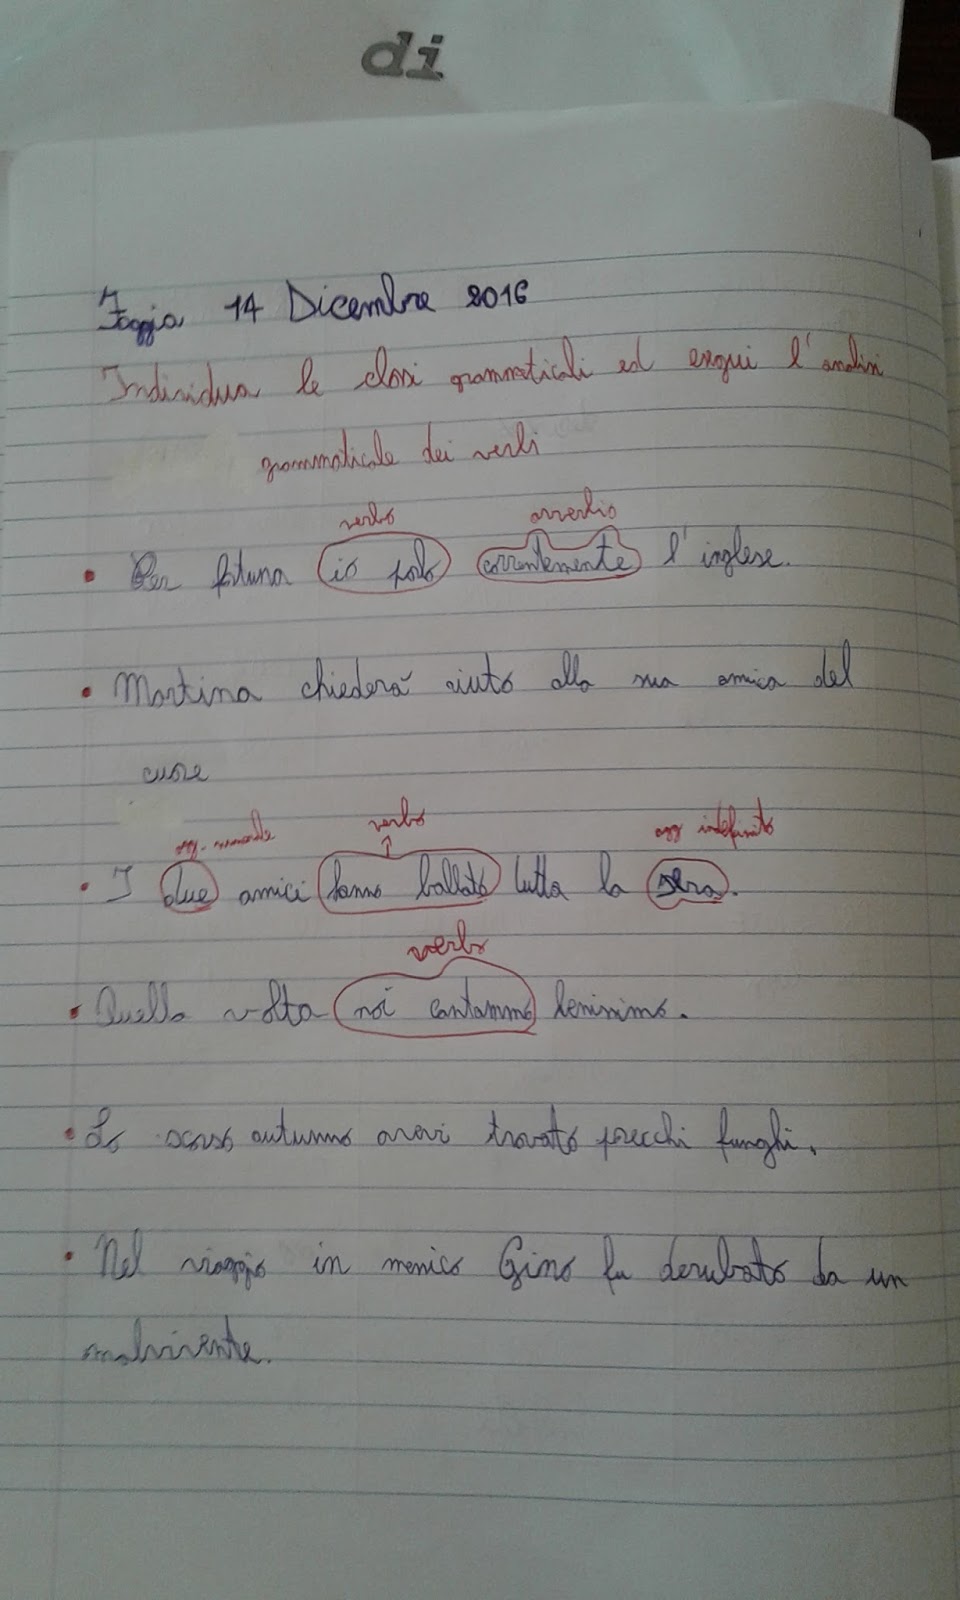 di
Foggia 14 Dicembre 2016
Individua le classi grammaticali ed esegui l'analisi
grammaticale dei verbi
verbo avverbio
• Per fortuna io parlo correntemente l'inglese.
• Martina chiederà aiuto alla sua amica del
cuore
agg. numerale verbo agg indefinito
• I due amici hanno ballato tutta la sera.
verbo
• Quella volta noi cantammo benissimo.
• Lo scorso autunno avevi trovato parecchi funghi.
• Nel viaggio in messico Gino fu derubato da un
malvivente.